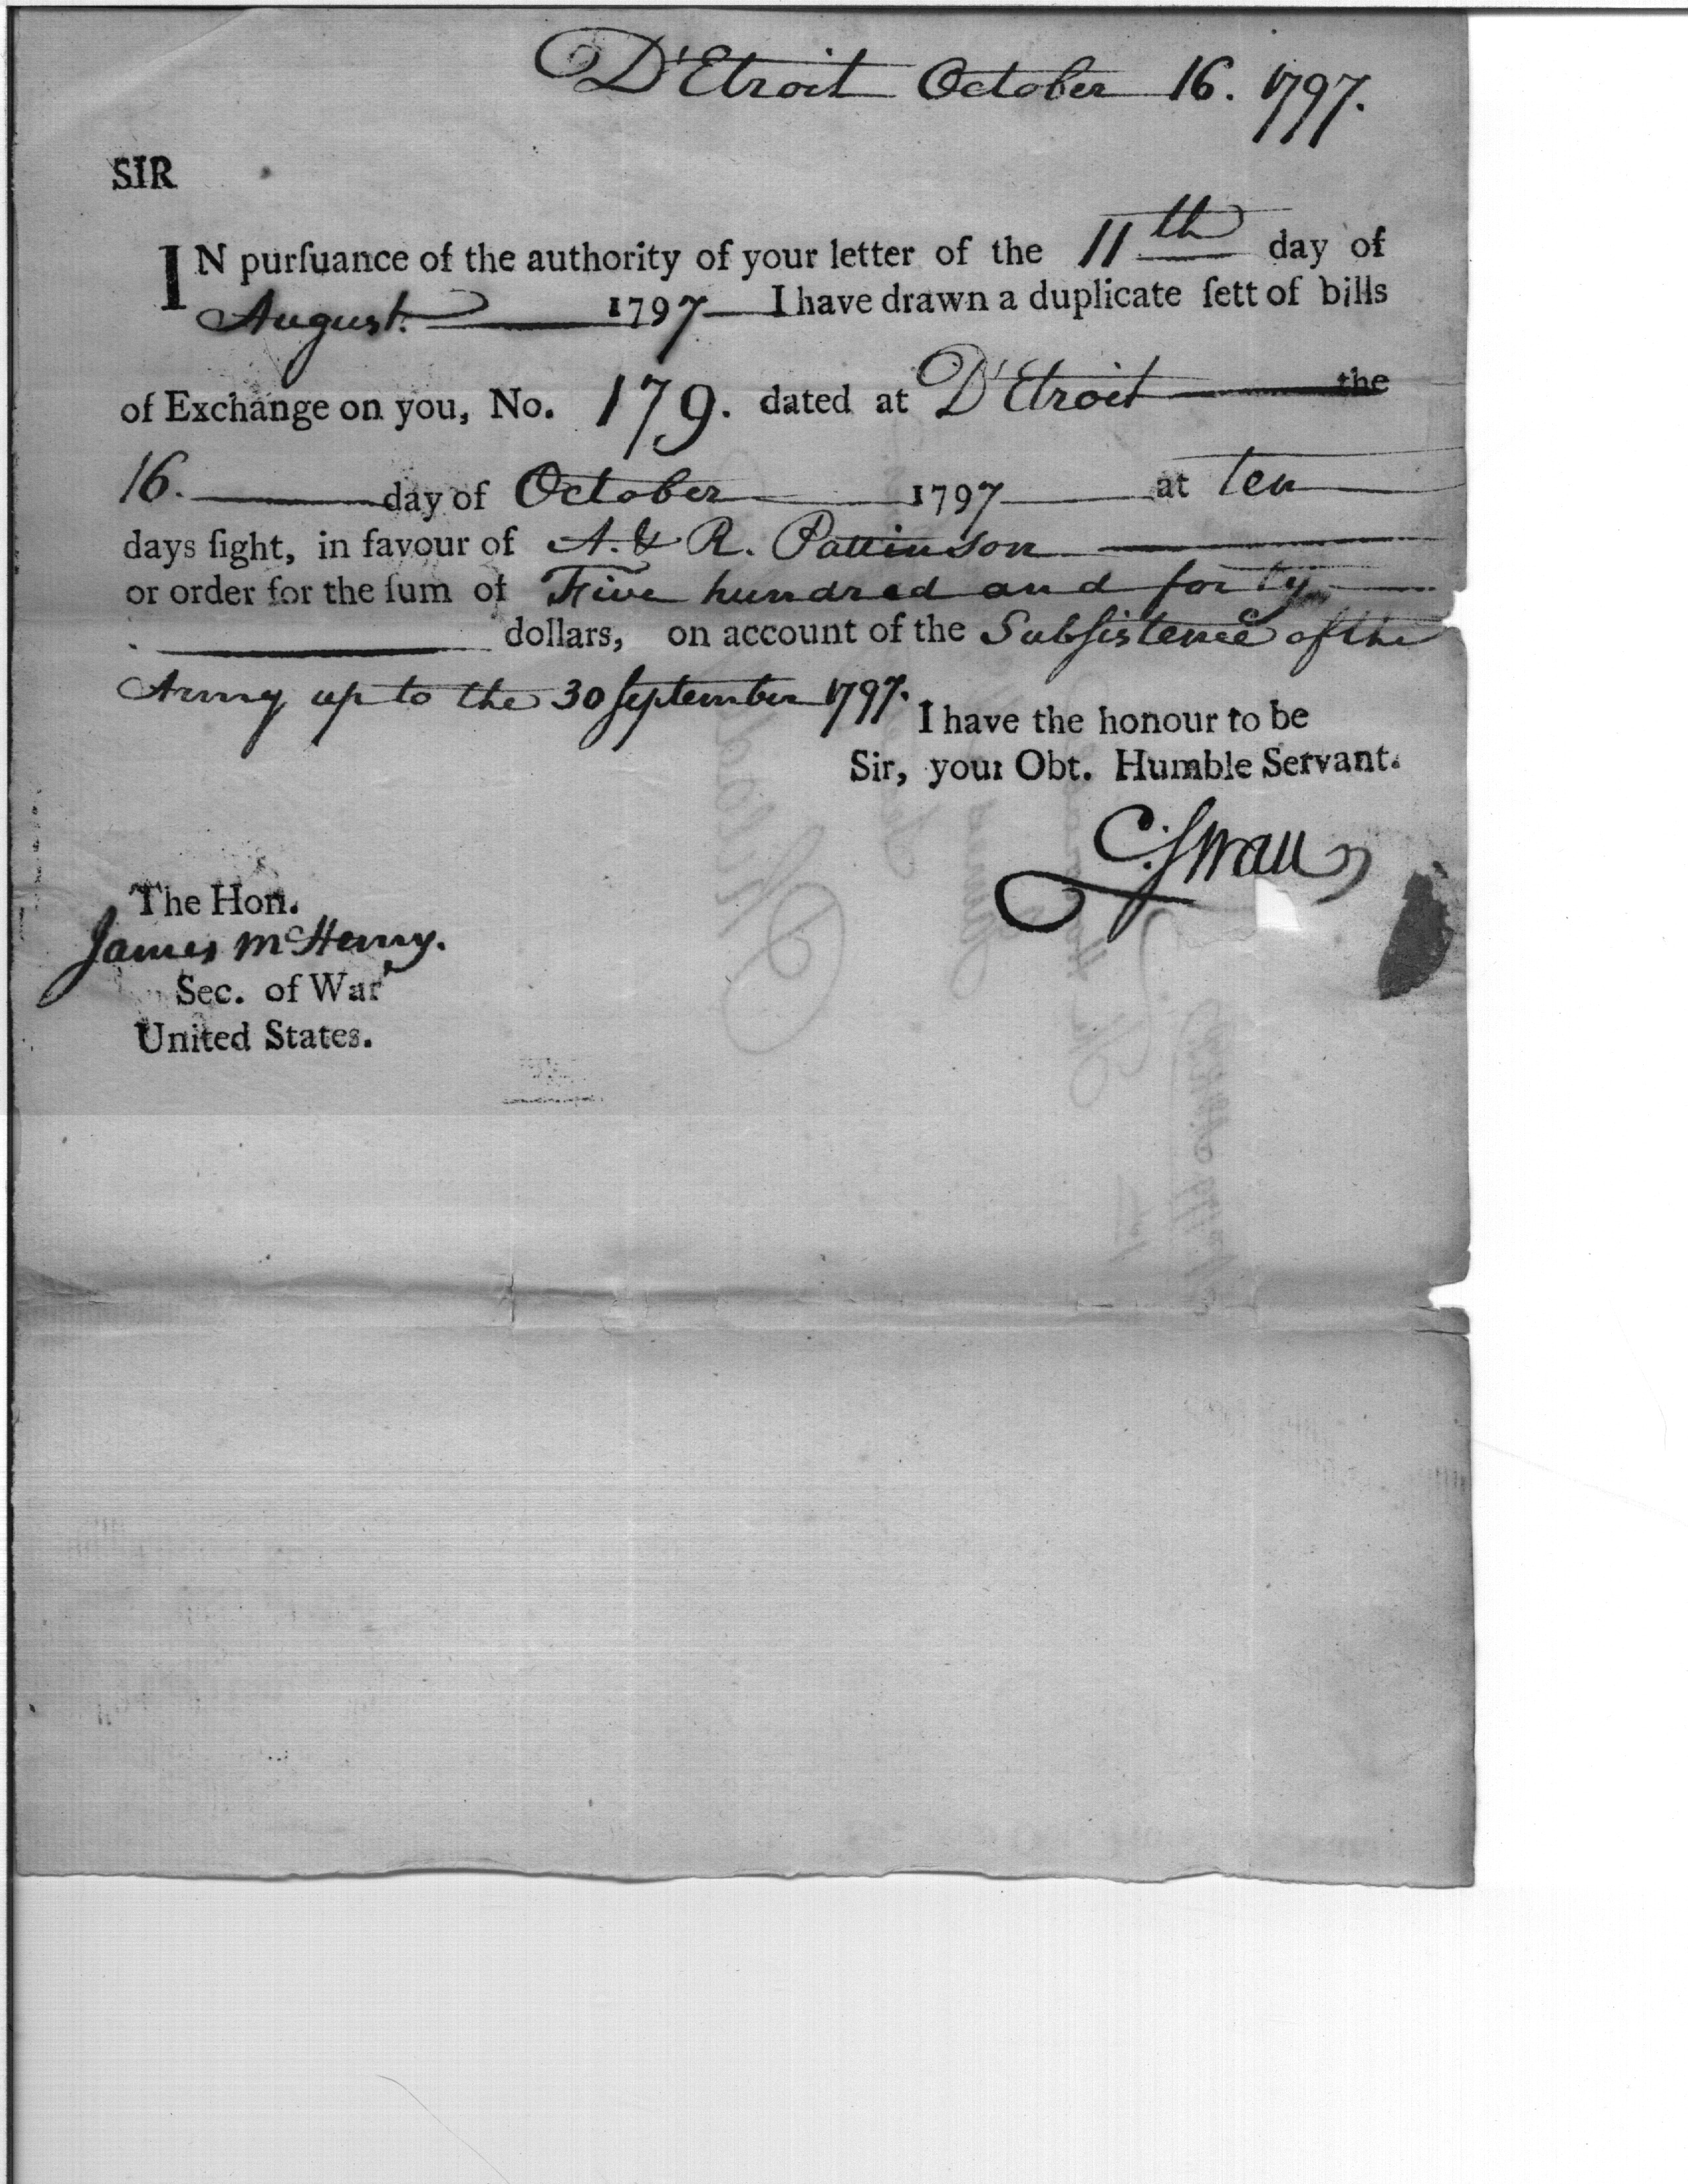 D'Etroit October 16. 1797.
SIR
IN purſuance of the authority of your letter of the 11th day of
August. 1797 I have drawn a duplicate ſett of bills
of Exchange on you, No. 179. dated at D'Etroit the
16. day of October 1797 at ten
days ſight, in favour of A. & R. Pattinson
or order for the ſum of Five hundred and forty
dollars, on account of the Subſistence of the
Army up to the 30 September 1797.
I have the honour to be
Sir, your Obt. Humble Servant.
C. Swan
The Hon.
James McHenry.
Sec. of War
United States.